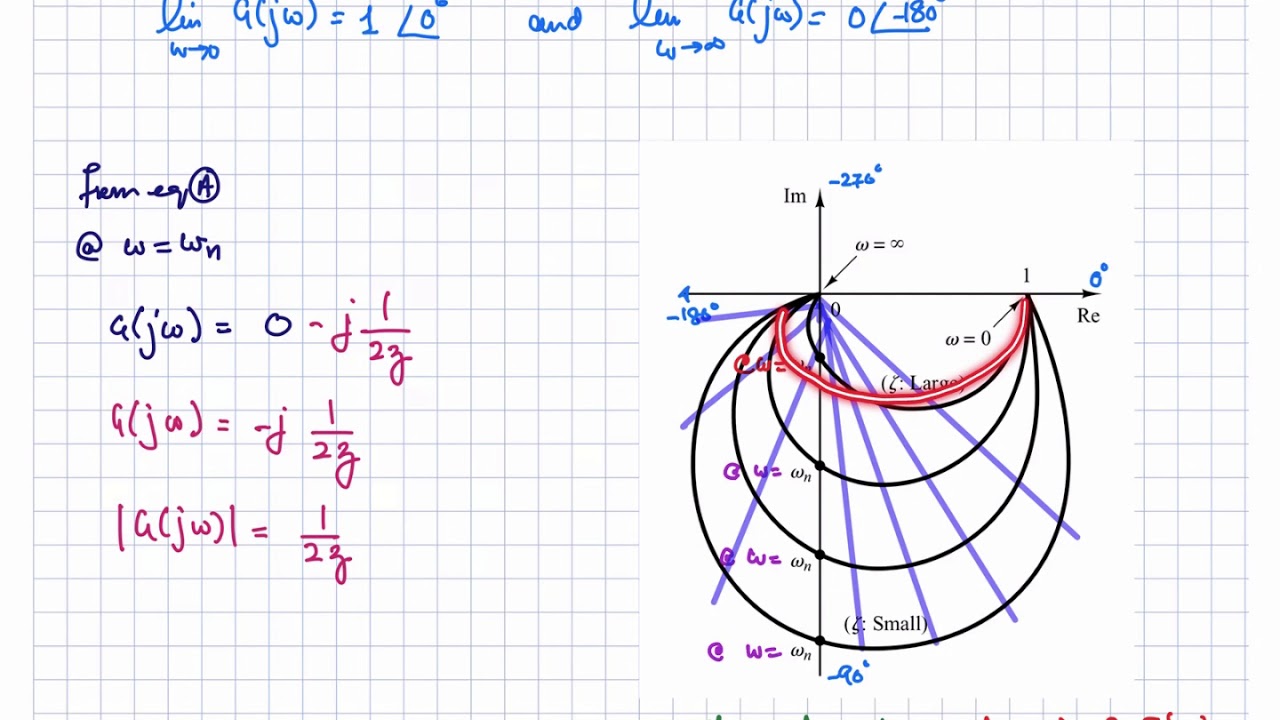 lim G(jω) = 1 ∠0° and lim G(jω) = 0∠-180°
ω→0 ω→∞
from eq Ⓐ
@ ω = ωn
G(jω) = 0 - j 1/2ζ
G(jω) = -j 1/2ζ
|G(jω)| = 1/2ζ
-270°
Im
ω = ∞
1
0°
-180°
0
Re
ω = 0
@ ω =
(ζ: Large)
@ ω = ωn
@ ω = ωn
(ζ: Small)
@ ω = ωn
-90°